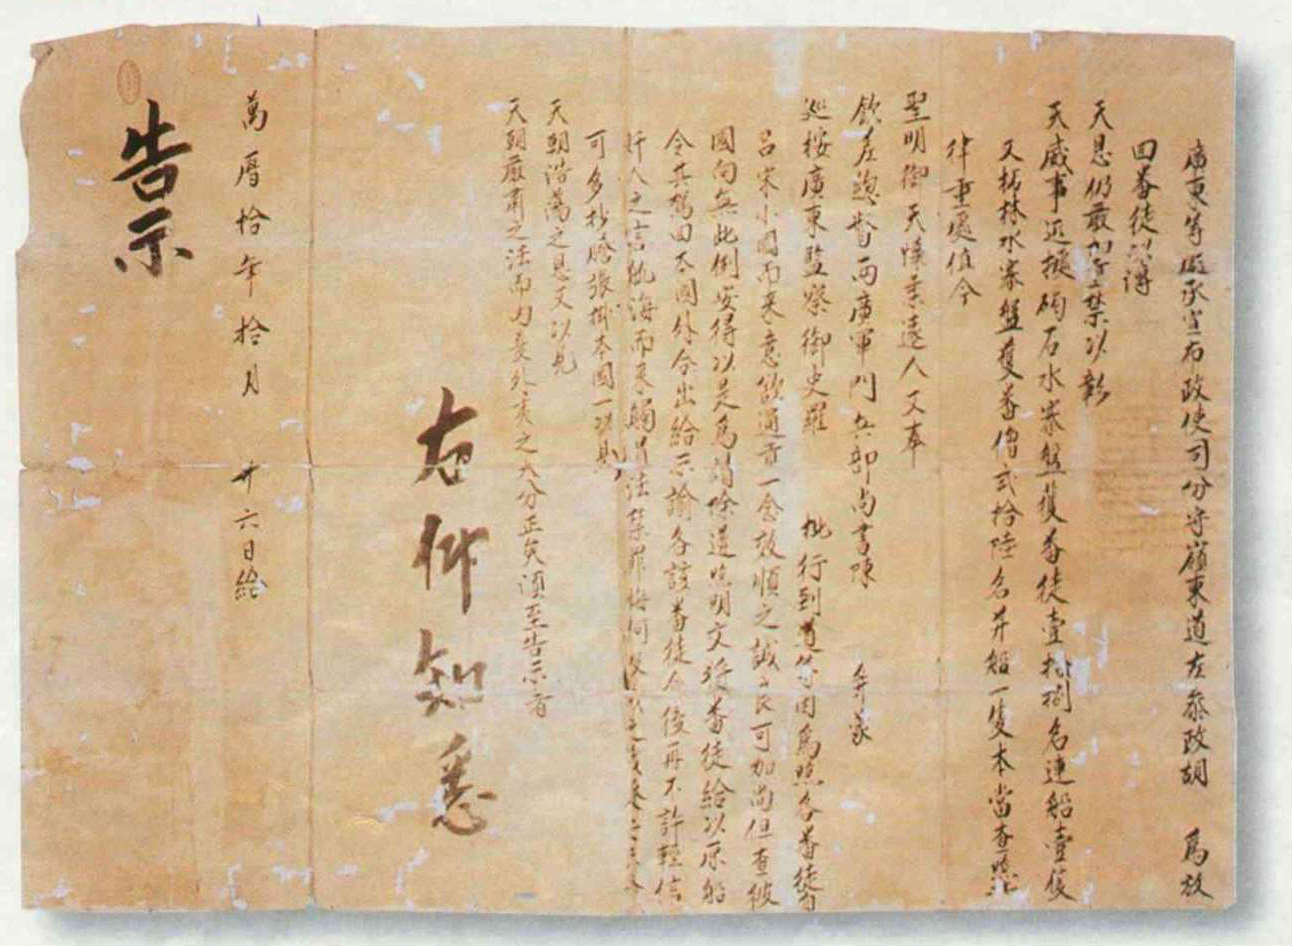 廣東等處承宣布政使司分守嶺東道左參政胡 爲放
回番徒以溥
天恩仍嚴加禁以彰
天威事近據碣石水寨盤獲番徒壹拾捌名連船壹隻
又據柘林水寨盤獲番僧貳拾陸名并船一隻本當查照
律重處值今
聖明御天懷柔遠人又奉
欽差總督兩廣軍門兵部尚書陳 并蒙
巡按廣東監察御史羅 批行到道等因爲照各番徒
呂宋小國而來意欲通貢一念效順之誠亦良可加尚但查彼
國向無此例安得以是爲請除遵照明文將番徒給以原船
令其駕回本國外合出給示諭各該番徒今後再不許輕信
奸人之言航海而來觸冒法禁罪悔何及
可多抄謄張掛本國一以見
天朝浩蕩之恩又以見
天朝嚴肅之法而內夏外夷之大分正矣須至告示者
右仰知悉
萬曆拾年拾月 廿六日給
告示